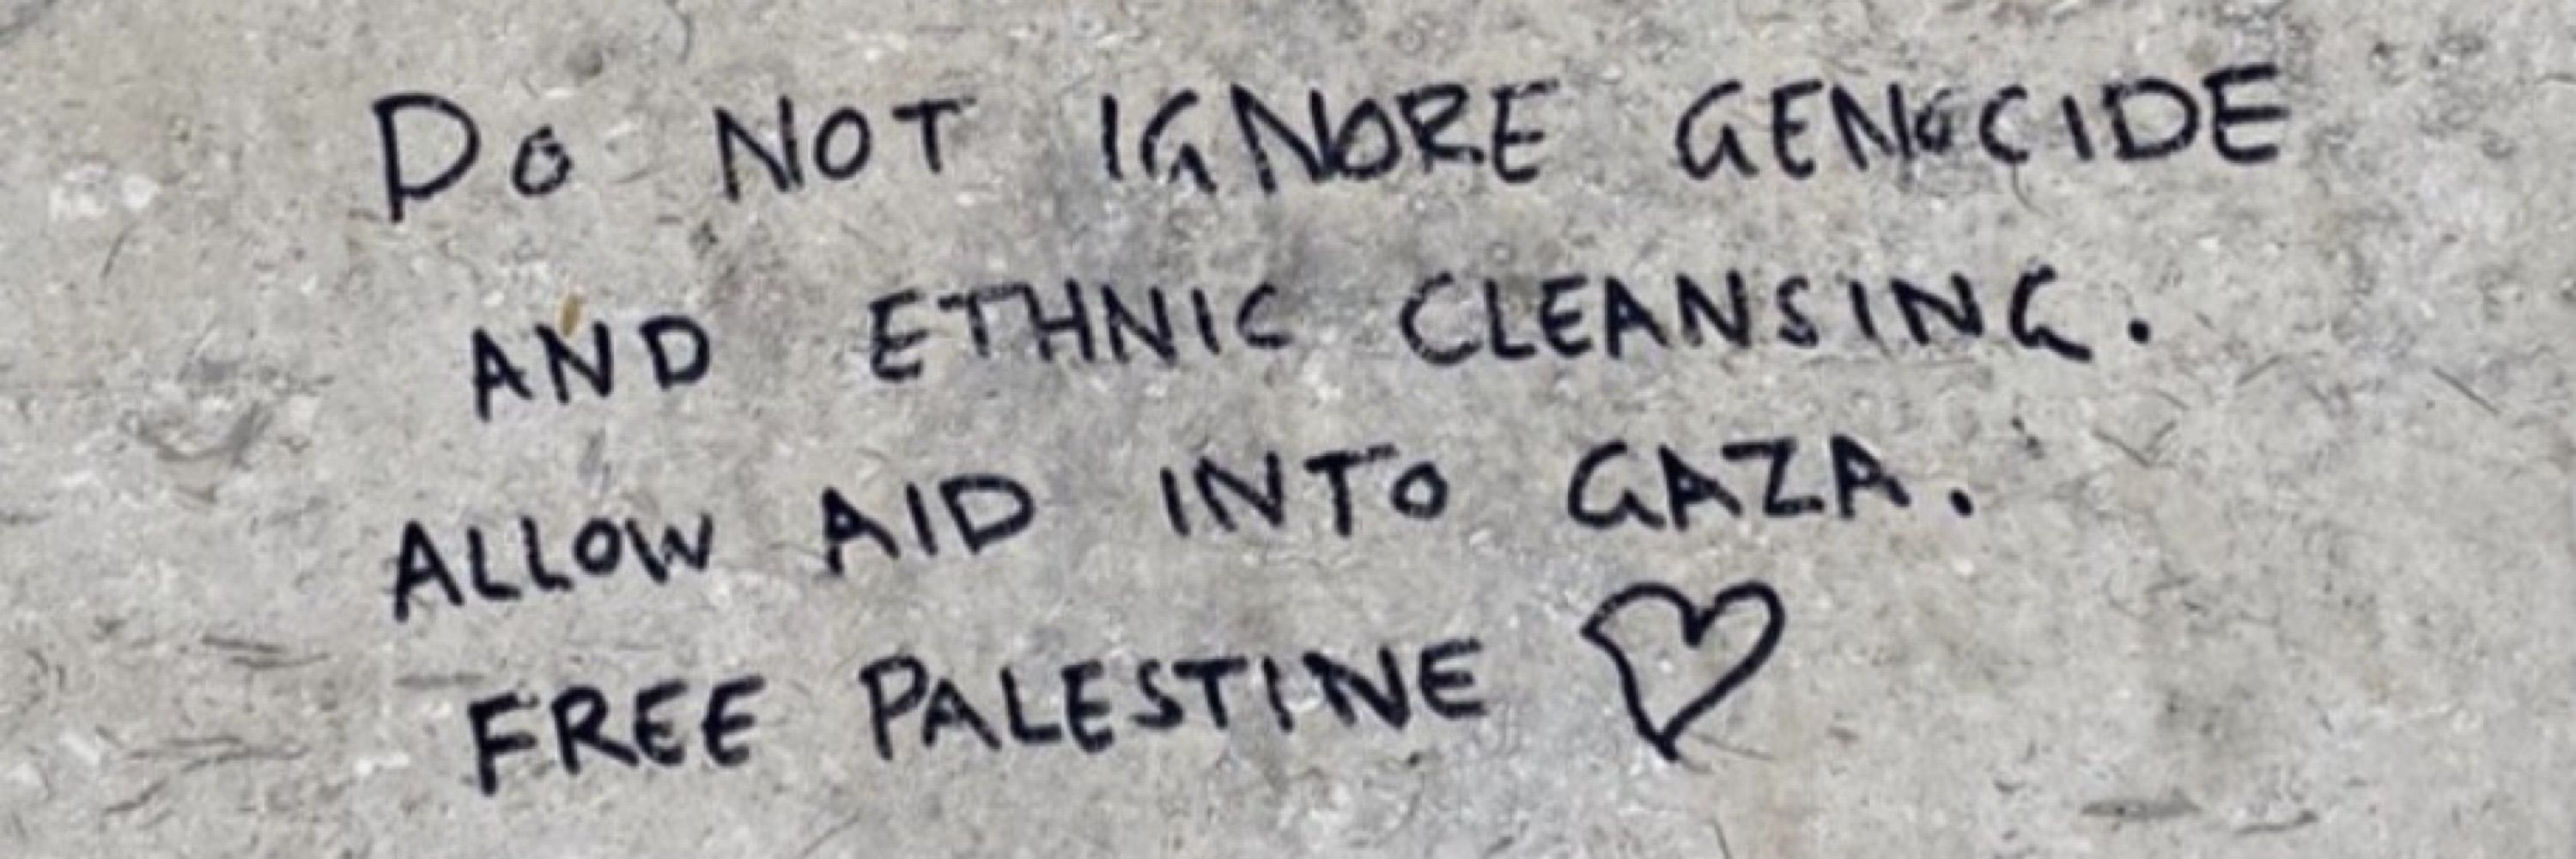 Do NOT IGNORE GENOCIDE
AND ETHNIC CLEANSING.
ALLOW AID INTO GAZA.
FREE PALESTINE ♡